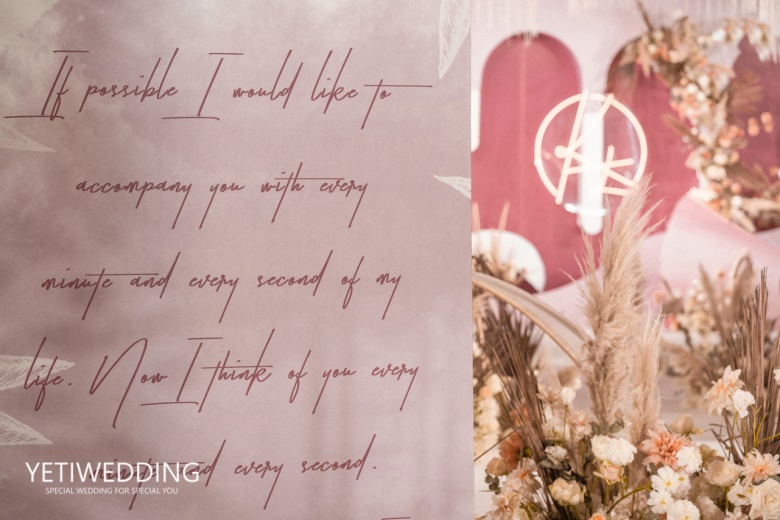 If possible I would like to
accompany you with every
minute and every second of my
life. Now I think of you every
minute and every second.
YETIWEDDING
SPECIAL WEDDING FOR SPECIAL YOU